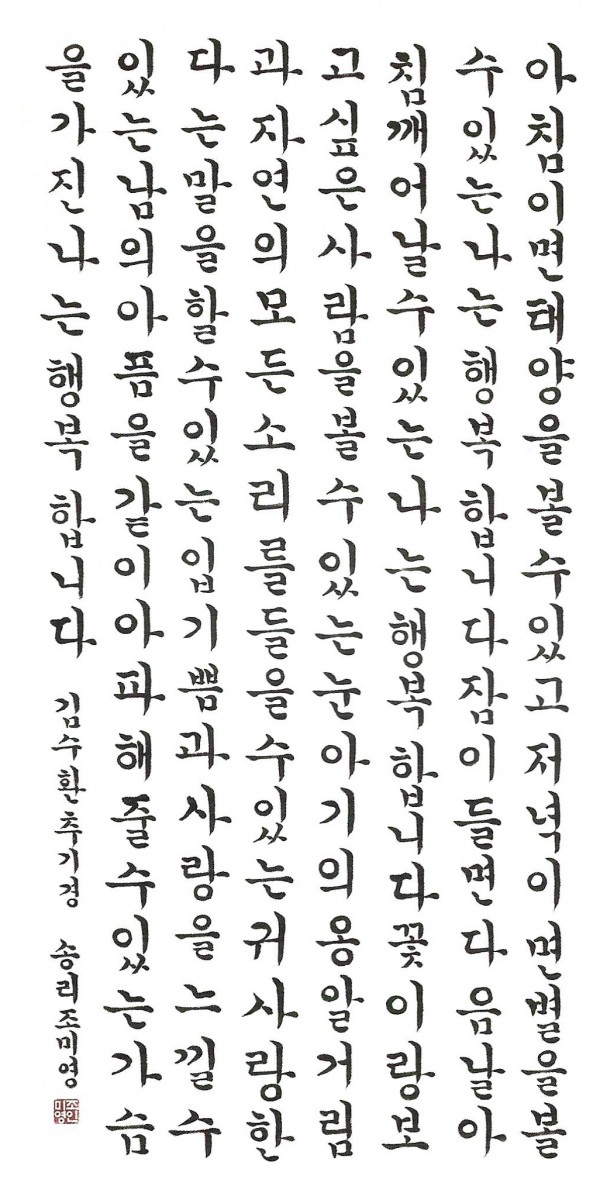 아침이면태양을볼수있고저녁이면별을볼
수있는나는행복합니다잠이들면다음날아
침깨어날수있는나는행복합니다꽃이랑보
고싶은사람을볼수있는눈아기의옹알거림
과자연의모든소리를들을수있는귀사랑한
다는말을할수있는입기쁨과사랑을느낄수
있는남의아픔을같이아파해줄수있는가슴
을가진나는행복합니다
김수환추기경 송리조미영